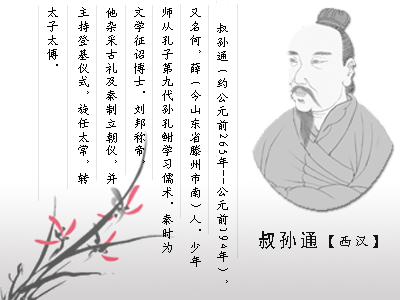 叔孙通（约公元前265年--公元前194年），
又名何，薛（今山东省滕州市南）人。少年
师从孔子第九代孙孔鲋学习儒术。秦时为
文学征诏博士。刘邦称帝，
他杂采古礼及秦制立朝仪，并
主持登基仪式，旋任太常，转
太子太傅。
叔孙通【西汉】